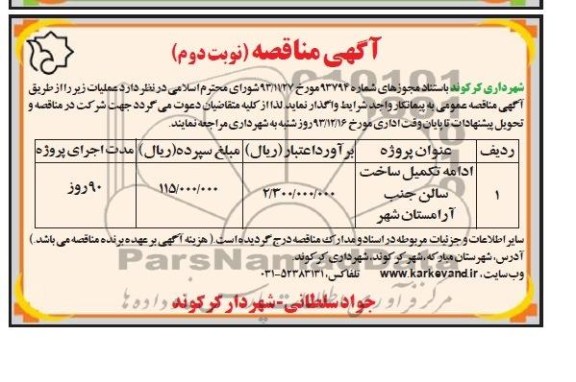 آگهی مناقصه (نوبت دوم)
شهرداری کرکوند باستناد مجوزهای شماره ۹۳۷۹۴ مورخ ۹۳/۱۱/۲۷ شورای محترم اسلامی در نظر دارد عملیات زیر را از طریق
آگهی مناقصه عمومی به پیمانکار واجد شرایط واگذار نماید. لذا از کلیه متقاضیان دعوت می گردد جهت شرکت در مناقصه و
تحویل پیشنهادات تا پایان وقت اداری مورخ ۹۳/۱۲/۱۶ روز شنبه به شهرداری مراجعه نمایند.
ردیف عنوان پروژه برآورد اعتبار (ریال) مبلغ سپرده (ریال) مدت اجرای پروژه
۱ ادامه تکمیل ساخت سالن جنب آرامستان شهر ۲/۳۰۰/۰۰۰/۰۰۰ ۱۱۵/۰۰۰/۰۰۰ ۹۰ روز
سایر اطلاعات و جزئیات مربوطه در اسناد و مدارک مناقصه درج گردیده است. ( هزینه آگهی بر عهده برنده مناقصه می باشد. )
آدرس، شهرستان مبارکه، شهر کرکوند، شهرداری کرکوند
وب سایت، www.karkevand.ir تلفاکس، ۵۲۳۸۳۱۳۱-۰۳۱
ParsNamadData
جواد سلطانی - شهردار کرکوند